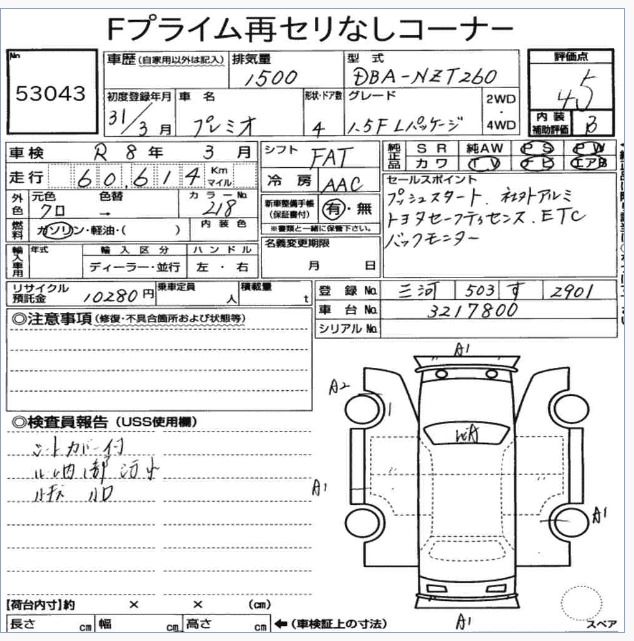 Fプライム再セリなしコーナー
No
53043
車歴 (自家用以外は記入)
排気量
1500
型式
DBA-NZT260
評価点
4.5
初度登録年月
31年3月
車名
プレミオ
形状・ドア数
4
グレード
1.5F Lパッケージ
2WD・4WD
内装補助評価
B
車検 R8年 3月
シフト
FAT
純正品
SR 純AW PS PW
カワ TV ナビ エアB
走行 60614 Km マイル
冷房
AAC
セールスポイント
プッシュスタート、社外アルミ
トヨタセーフティセンス、ETC
バックモニター
外色
元色
クロ
色替
→
カラーNo
218
内装色
新車整備手帳(保証書付)
有・無
※書類と一緒に保管下さい。
燃料 ガソリン・軽油・( )
名義変更期限
月 日
輸入車用
年式
輸入区分
ディーラー・並行
ハンドル
左・右
リサイクル預託金
10280円
乗車定員
人
積載量
t
登録No. 三河 503 す 2901
車台No. 3217800
シリアルNo.
◎注意事項 (修復・不具合箇所および状態等)
◎検査員報告 (USS使用欄)
シートカバー付
A1
A2
A1
A1
A1
スペア
【荷台内寸】約 × × (cm)
長さ cm 幅 cm 高さ cm ←(車検証上の寸法)